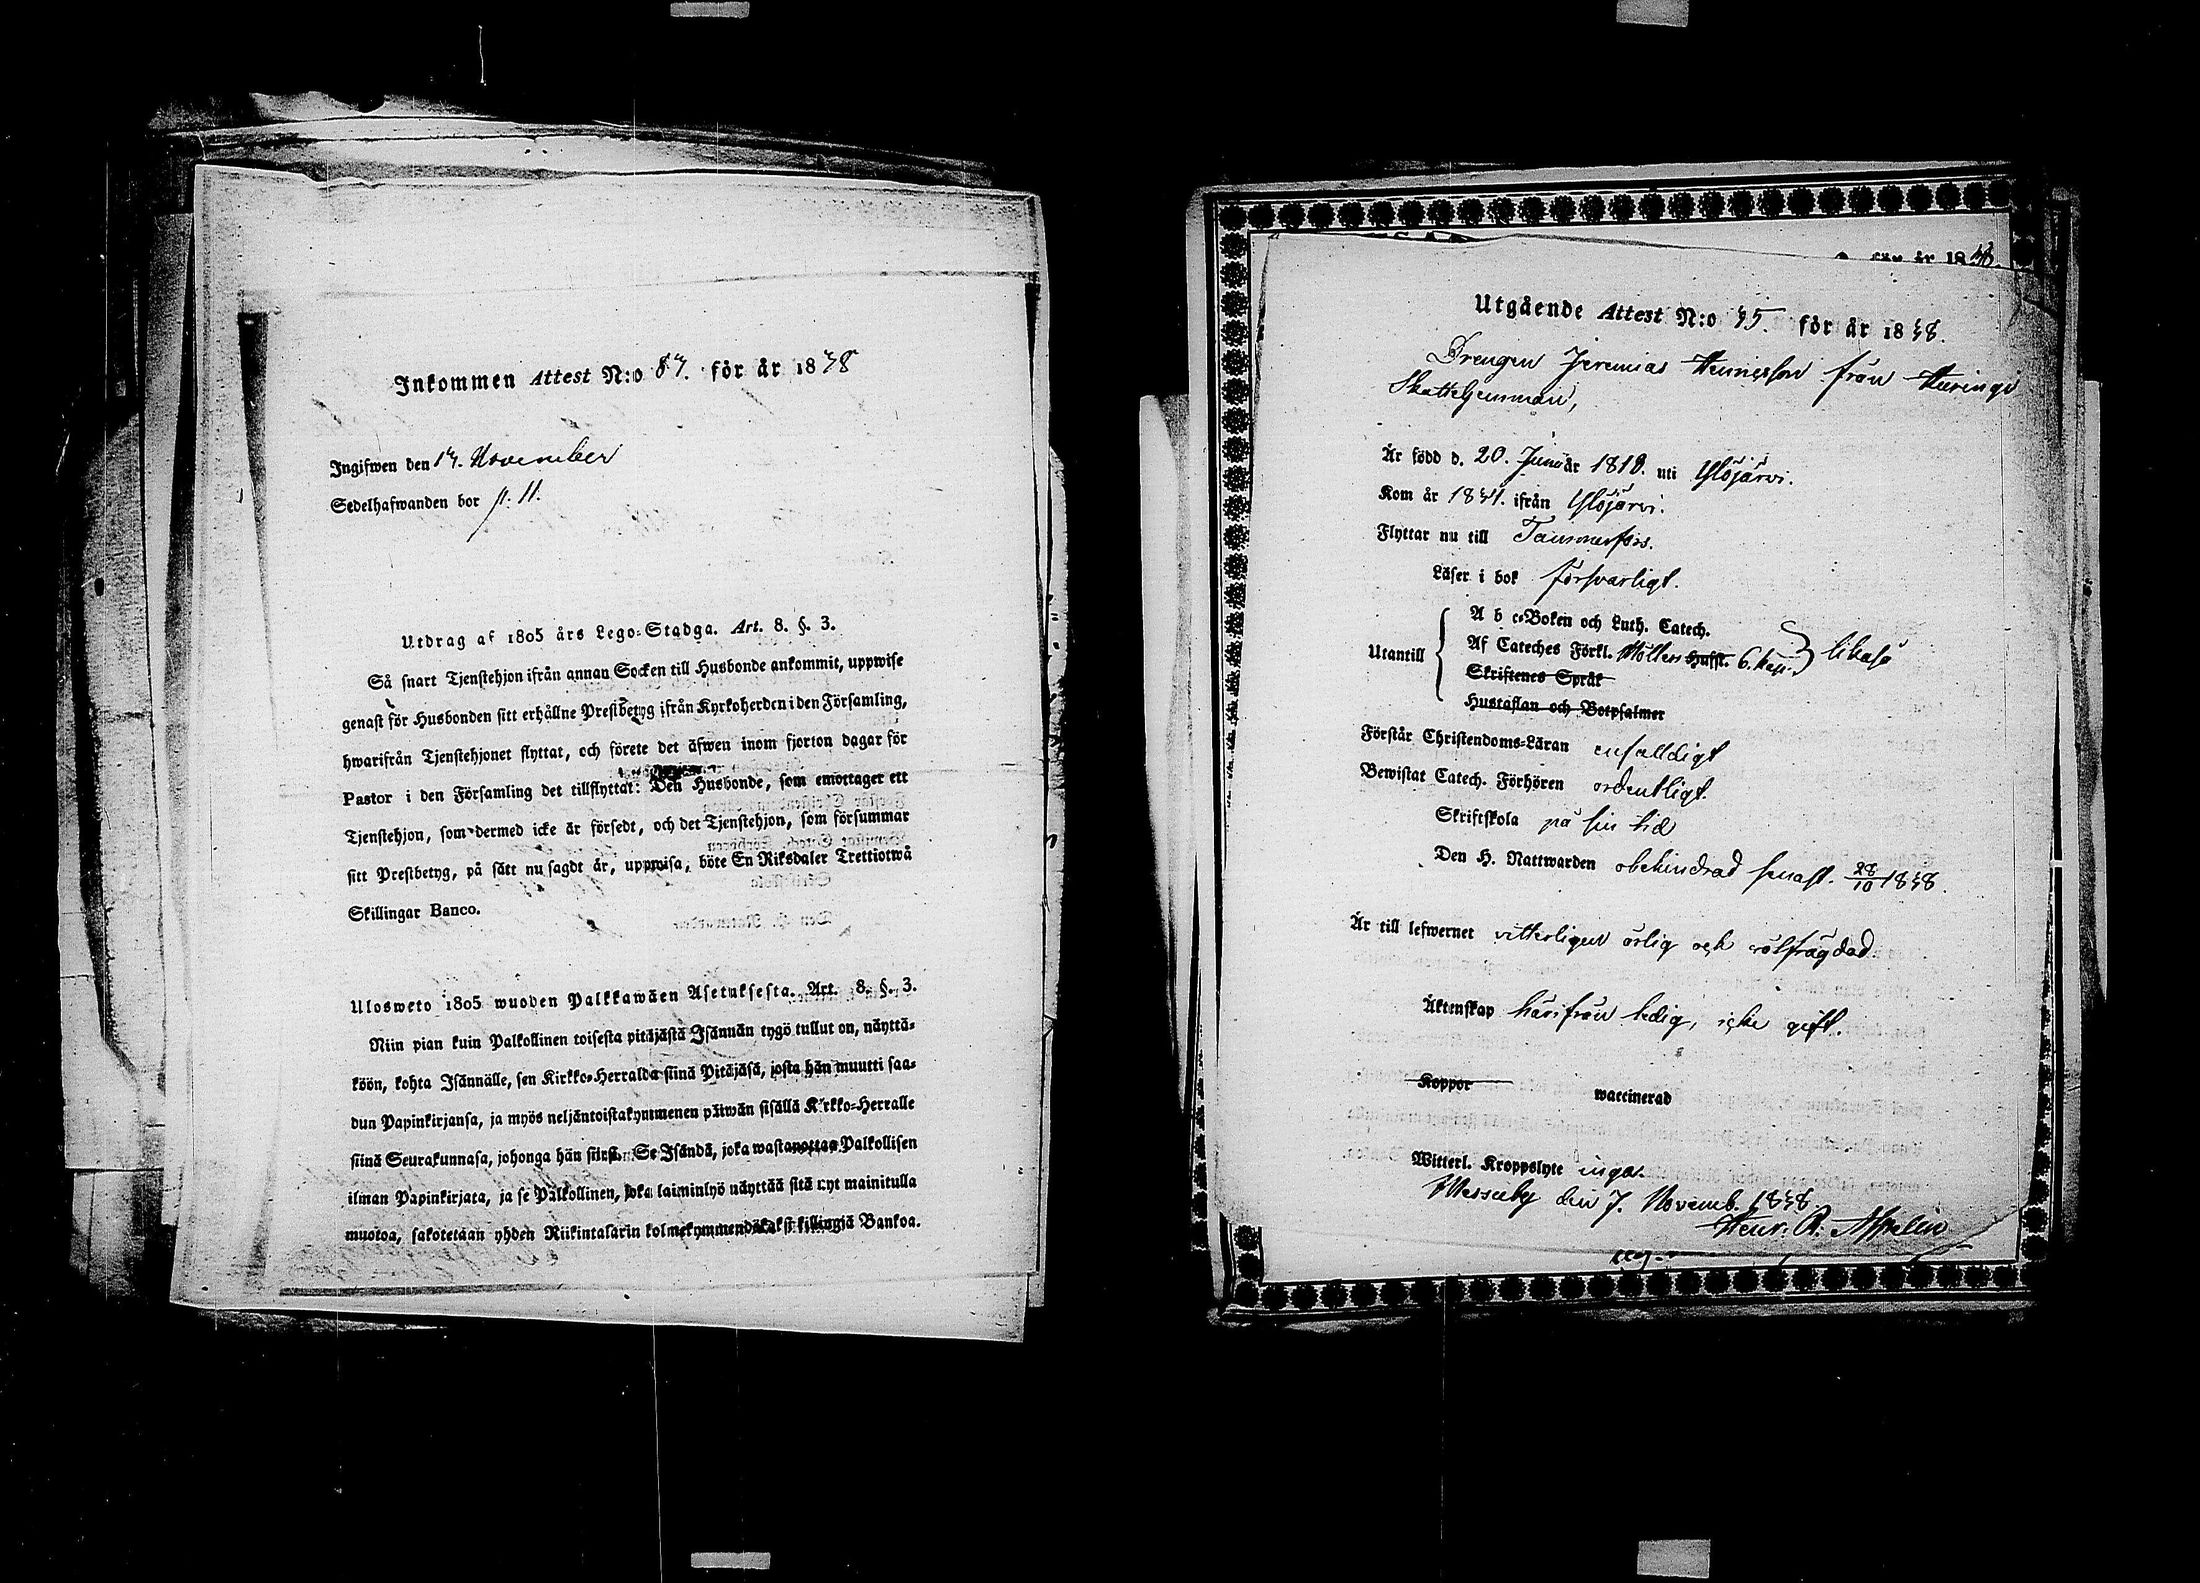 Inkommen Attest N:o 87. för år 1848
Ingifwen den 17. November
Sedelhafwanden bor p. 11.
Utdrag af 1805 års Lego-Stadga. Art. 8. §. 3.
Så snart Tjenstehjon ifrån annan Socken till Husbonde ankommit, uppwise
genast för Husbonden sitt erhållne Prestbetyg ifrån Kyrkoherden i den Församling,
hwarifrån Tjenstehjonet flyttat, och förete det äfwen inom fjorton dagar för
Pastor i den Församling det tillflyttat: Den Husbonde, som emottager ett
Tjenstehjon, som dermed icke är försedt, och det Tjenstehjon, som försummar
sitt Prestbetyg, på sätt nu sagdt är, uppwisa, böte En Riksdaler Trettiotwå
Skillingar Banco.
Ulosweto 1805 wuoden Palkkawäen Asetuksesta. Art. 8. §. 3.
Niin pian kuin Palkollinen toisesta pitäjästä Isännän tygö tullut on, näyttä-
köön, kohta Isännälle, sen Kirkko-Herralda siinä Pitäjäsä, josta hän muutti saa-
dun Papinkirjansa, ja myös neljäntoistakymmenen päiwän sisällä Kirkko-Herralle
siinä Seurakunnasa, johonga hän siirsi. Se Isändä, joka wastanottaa Palkollisen
ilman Papinkirjata, ja se Palkollinen, joka laiminlyö näyttää sitä nyt mainitulla
muotoa, sakotetaan yhden Riikintalarin kolmekymmendäkaksi killingiä Bankoa.
för år 1848.
Utgående Attest N:o 45. för år 1848.
Drengen Jeremias Henriksson från Huringi
Skattehemman,
Är född d. 20. Juni år 1818. uti Ylöjärvi.
Kom år 1841. ifrån Ylöjärvi.
Flyttar nu till Tammerfors.
Läser i bok försvarligt.
Utantill
A b c-Boken och Luth. Catech.
Af Cateches Förkl. Möllers Hufst. 6. Kap. likaså
Skriftenes Språk
Hustaflan och Botpsalmer
Förstår Christendoms-Läran enfalldigt
Bewistat Catech. Förhören ordentligt.
Skriftskola på sin tid
Den H. Nattwarden obehindrad senast. 28/10 1848.
Är till lefwernet vitterligen ärlig och välfrägdad.
Äktenskap härifrån ledig, icke gift.
Koppor waccinerad
Witterl. Kroppslyte inga.
Messuby den 7. Novemb. 1848.
Henr. R. Aspelin